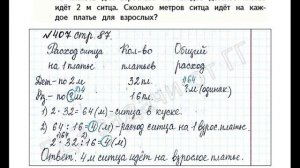 идёт 2 м ситца. Сколько метров ситца идёт на каж-
дое платье для взрослых?
№407 стр. 87.
Расход ситца Кол-во Общий
на 1 платье. платьев расход
Дет.- по 2 м 32 пл. ?м (одинак.)
Вз.- по ? м 16 пл.
1) 2 · 32 = 64 (м) - ситца в куске.
2) 64 : 16 = 4 (м) - расход ситца на 1 взросл. платье.
2 · 32 : 16 = 4 (м)
Ответ: 4 м ситца идёт на взрослое платье.